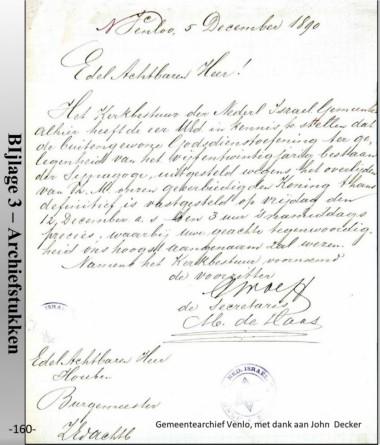 Venloo, 5 December 1890
Edel Achtbaren Heer!
Het Kerkbestuur der Nederl Israel Gemeente
alhier heeft de eer UEd in kennis te stellen dat
de buitengewone Godsdienstoefening ter ge,
legenheid van het vijfentwintig jarig bestaan
der Synagoge, uitgesteld wegens het overlijden
van Z. M. onzen geëerbiedigden Koning thans
definitief is vastgesteld op vrijdag den
12 December a. s. ten 3 uur 's namiddags
precies, waarbij uwe geachte tegenwoordig-
heid ons hoogst aangenaam zal wezen.
Namens het Kerkbestuur voornoemd
de voorzitter
de Secretaris
M. de Haas
Edel Achtbaren Heer
Houben
Burgemeester
NED. ISRAEL
BIjlage 3 – Archiefstukken
-160-
Gemeentearchief Venlo, met dank aan John Decker